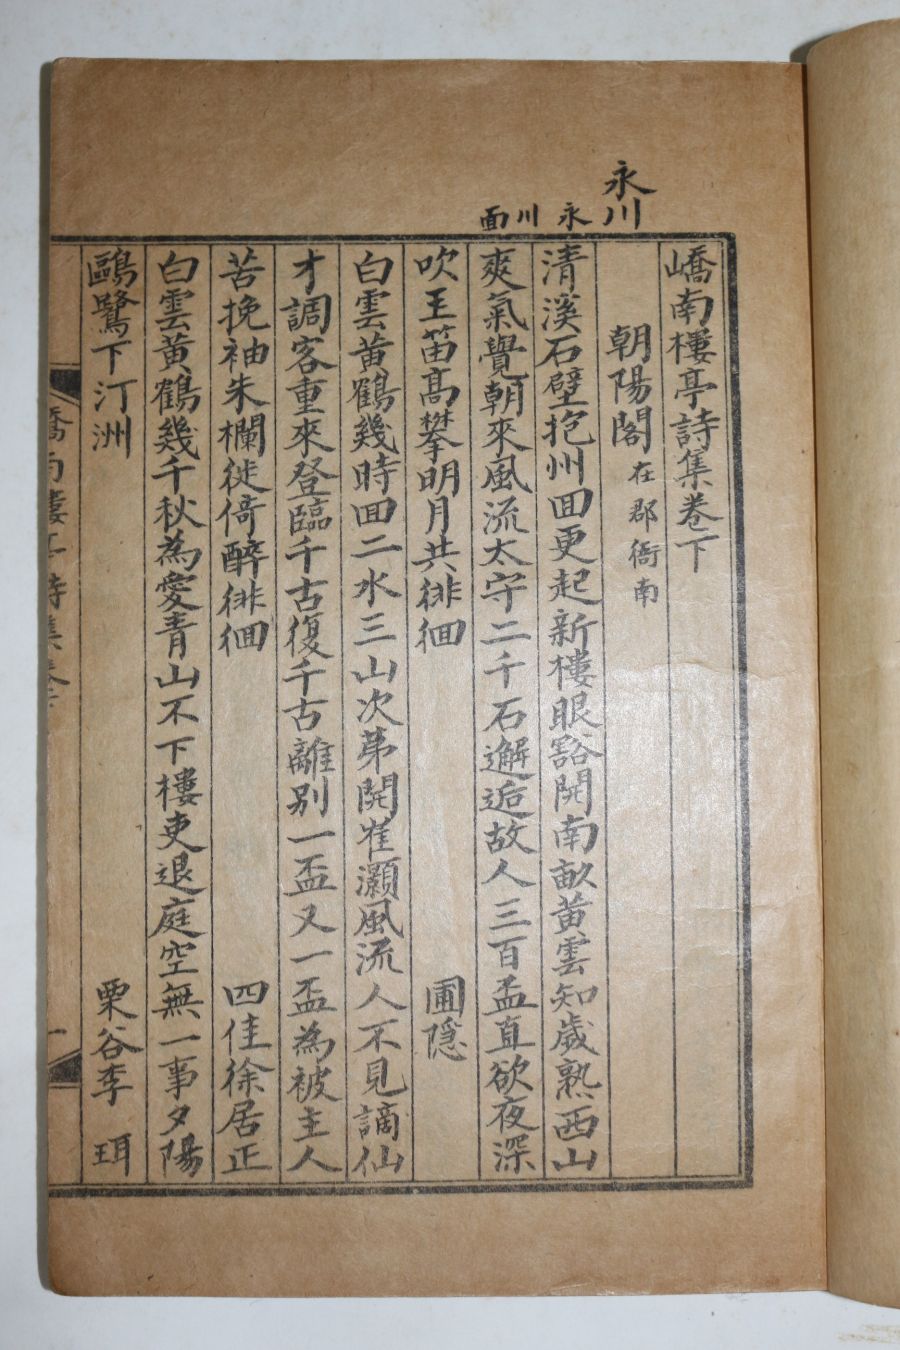 永川
永川面
嶠南樓亭詩集卷下
朝陽閣 在郡衙南
清溪石壁抱州囬更起新樓眼豁開南畝黃雲知歲熟西山
爽氣覺朝來風流太守二千石邂逅故人三百盃直欲夜深
吹王笛高攀明月共徘徊 圃隱
白雲黃鶴幾時囬二水三山次苐開崔灝風流人不見謫仙
才調客重來登臨千古復千古離別一盃又一盃為被主人
苦挽袖朱欄徙倚醉徘徊 四佳徐居正
白雲黃鶴幾千秋為愛青山不下樓吏退庭空無一事夕陽
鷗鷺下汀洲 栗谷李珥